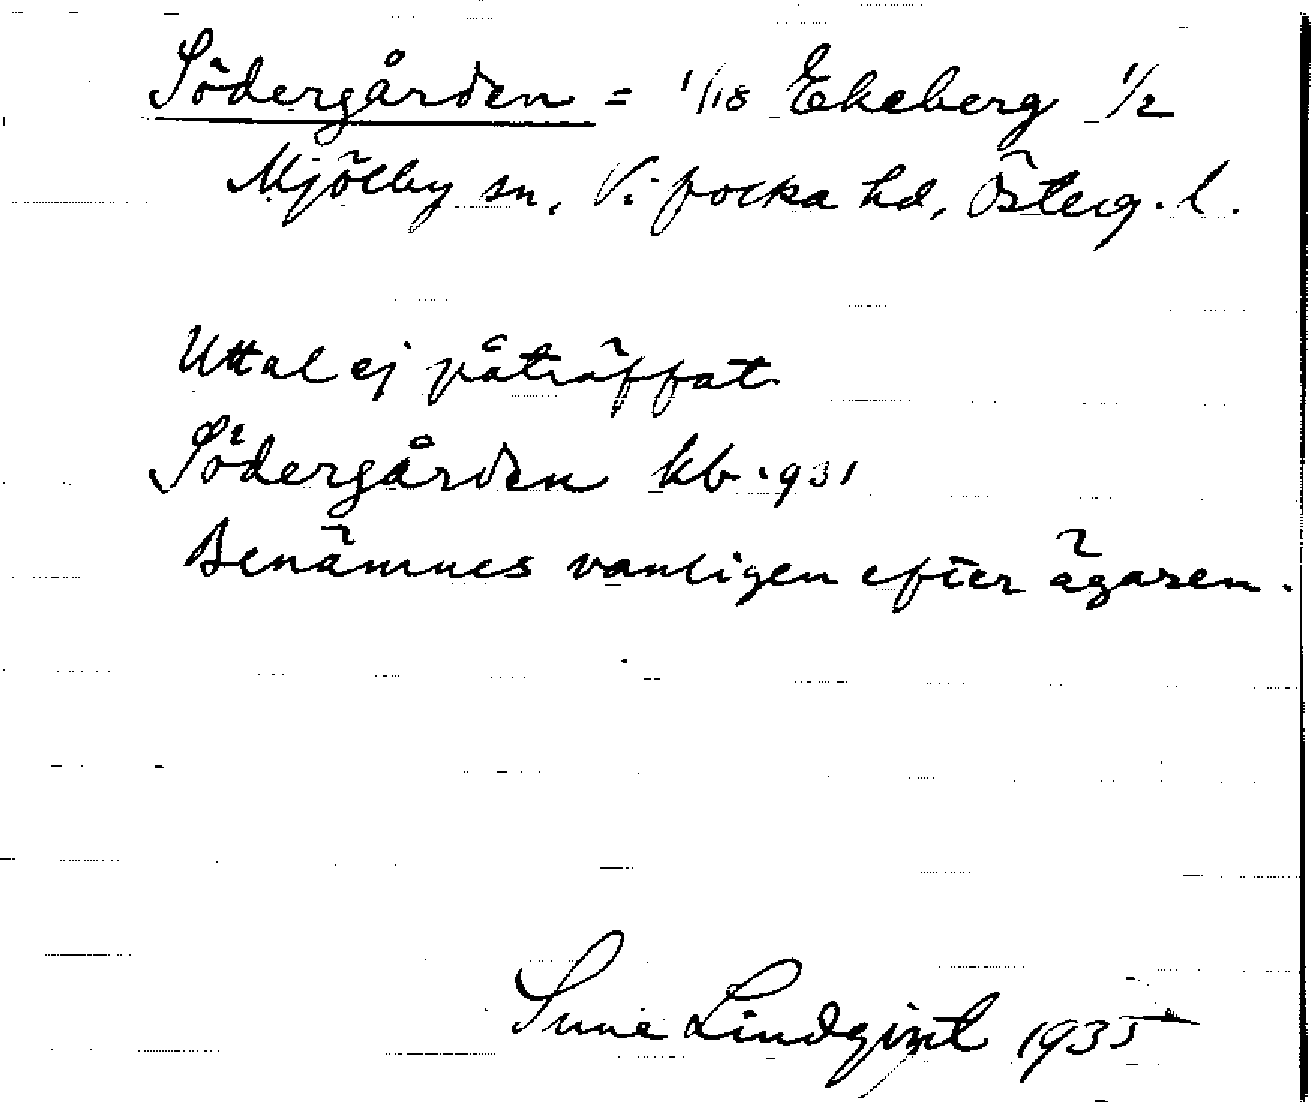 Södergården = 1/18 Ekeberg 1/2
Mjölby sn, Vifolka hd, Österg. l.
Uttal ej påträffat
Södergården kb. 1931
Benämnes vanligen efter ägaren.
Sune Lindqvist 1935